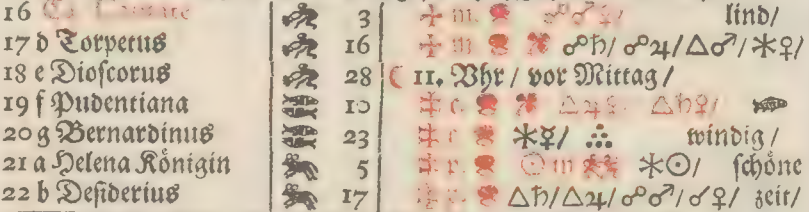 16 C Cantate 3 m. ☍♂♀/ lind/
17 d Torpetus 16 m. ☍♄/ ☍♃/ △♂/ ⚹♀/
18 e Dioscorus 28 ☾ 11. Vhr / vor Mittag /
19 f Pudentiana 10 △♃♀ △♄♀/
20 g Bernardinus 23 ⚹☿/ windig /
21 a Helena Königin 5 ☉ m ⚹☉/ schöne
22 b Desiderius 17 △♄/ △♃/ ☍♂/ ☌♀/ zeit/